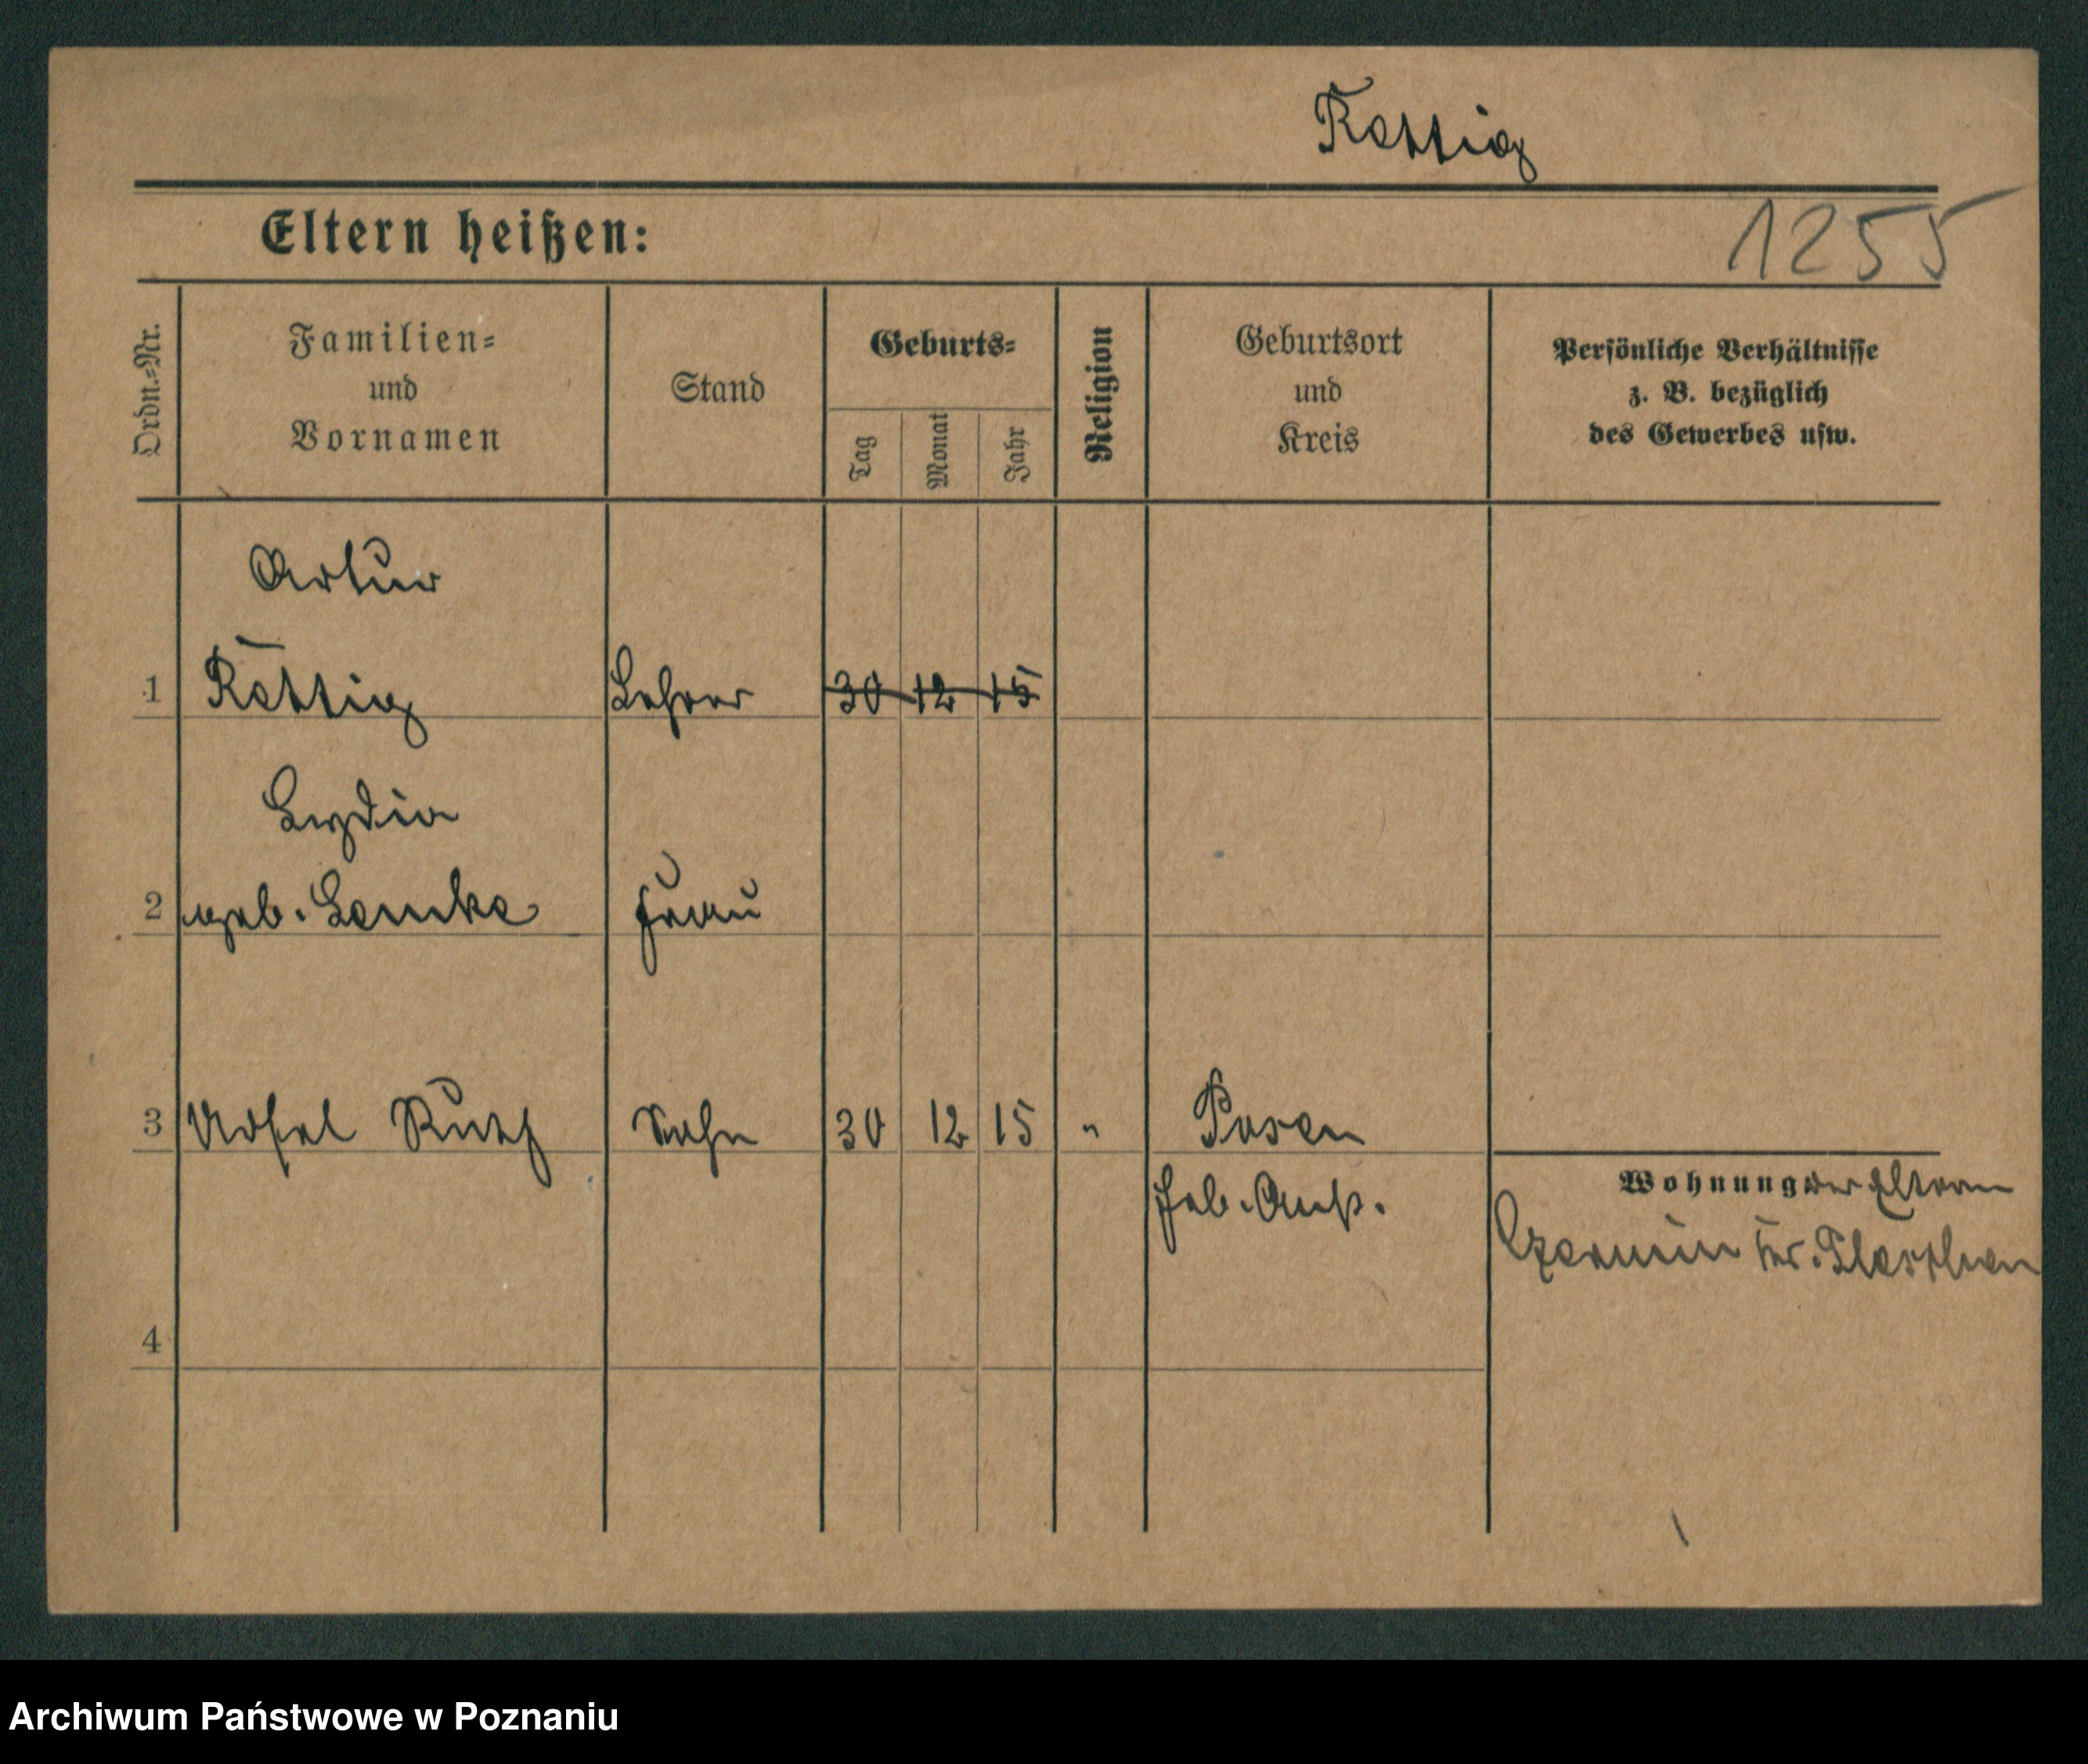 Rettig
Eltern heißen:
1255
Ordn.=Nr.
Familien=
und
Vornamen
Stand
Geburts=
Tag
Monat
Jahr
Religion
Geburtsort
und
Kreis
Persönliche Verhältnisse
z. B. bezüglich
des Gewerbes usw.
Artur
1 Rettig Lehrer 30 12 15
Lydia
2 geb. Lemke Frau
3 Ursel Ruth 30 12 15 " Posen
Wohnung der Eltern
Heb. Anst.
Czermin Kr. Pleschen
4
Archiwum Państwowe w Poznaniu